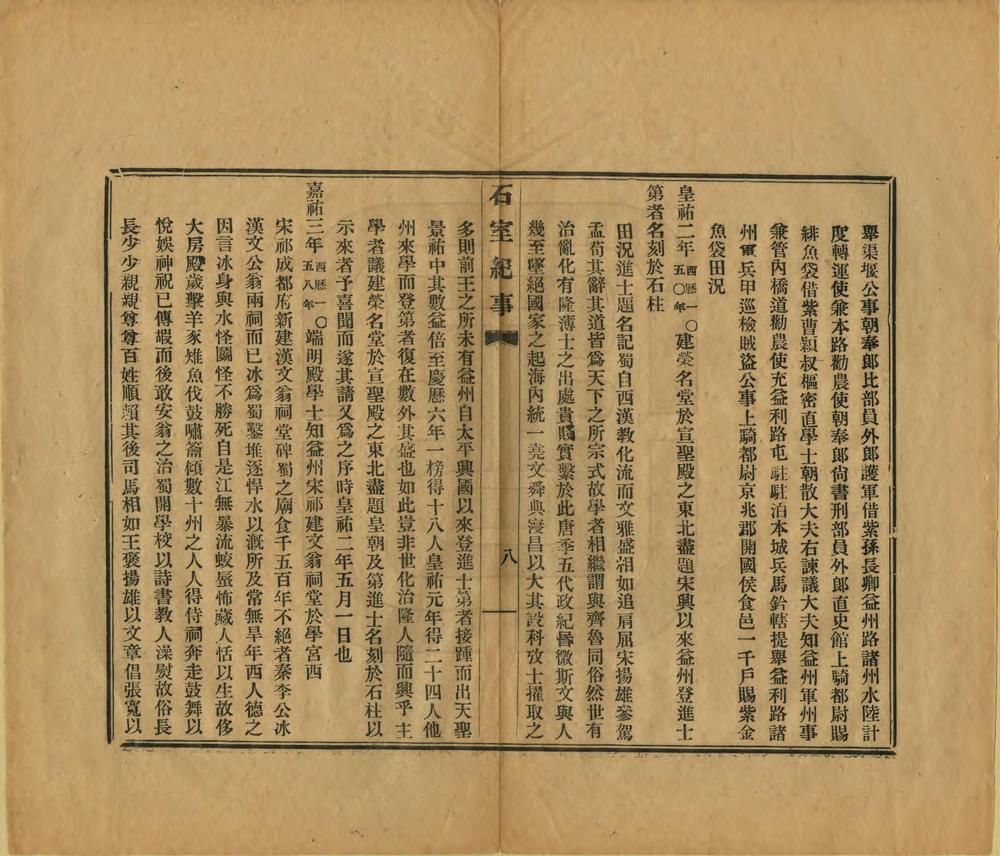 舉渠堰公事朝奉郎比部員外郎護軍借紫孫長卿益州路諸州水陸計
度轉運使兼本路勸農使朝奉郎尚書刑部員外郎直史館上騎都尉賜
緋魚袋借紫曹穎叔樞密直學士朝散大夫右諫議大夫知益州軍州事
兼管內橋道勸農使充益利路屯駐駐泊本城兵馬鈐轄提舉益利路諸
州軍兵甲巡檢賊盜公事上騎都尉京兆郡開國侯食邑一千戶賜紫金
魚袋田況
皇祐二年西歷一〇五〇年建榮名堂於宣聖殿之東北盡題宋興以來益州登進士
第者名刻於石柱
田況進士題名記蜀自西漢教化流而文雅盛相如追肩屈宋揚雄參駕
孟荀其辭其道皆為天下之所宗式故學者相繼謂與齊魯同俗然世有
治亂化有隆薄士之出處貴賤實繫於此唐季五代政紀昏微斯文與人
幾至墜絕國家之起海內統一堯文舜典寖昌以大其設科攷士擢取之
石室紀事
八
多則前王之所未有益州自太平興國以來登進士第者接踵而出天聖
景祐中其數益倍至慶歷六年一榜得十八人皇祐元年得二十四人他
州來學而登第者復在數外其盛也如此豈非世化治隆人隨而興乎主
學者議建榮名堂於宣聖殿之東北盡題皇朝及第進士名刻於石柱以
示來者予喜聞而遂其請又為之序時皇祐二年五月一日也
嘉祐三年西歷一〇五八年端明殿學士知益州宋祁建文翁祠堂於學宮西
宋祁成都府新建漢文翁祠堂碑蜀之廟食千五百年不絕者秦李公冰
漢文公翁兩祠而已冰為蜀鑿堆逐悍水以溉所及常無旱年西人德之
因言冰身與水怪鬬怪不勝死自是江無暴流蛟蜃怖藏人恬以生故侈
大房殿歲擊羊豕雉魚伐鼓嘯籥傾數十州之人人得侍祠奔走鼓舞以
悅娛神祝已傳嘏而後敢安翁之治蜀開學校以詩書教人澡熨故俗長
長少少親親尊尊百姓順賴其後司馬相如王褒揚雄以文章倡張寬以